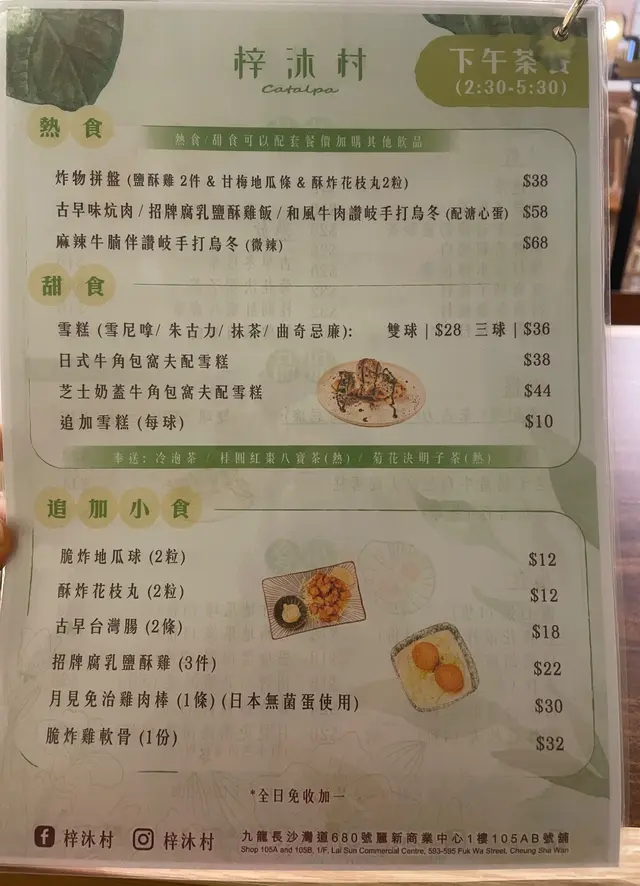 梓沐村
Catalpa
下午茶食
(2:30-5:30)
熱食
熱食/甜食可以配套餐價加購其他飲品
炸物拼盤 (鹽酥雞 2件 & 甘梅地瓜條 & 酥炸花枝丸2粒) $38
古早味炕肉 / 招牌腐乳鹽酥雞飯 / 和風牛肉讚岐手打烏冬 (配溏心蛋) $58
麻辣牛腩伴讚岐手打烏冬 (微辣) $68
甜食
雪糕 (雪尼嗱/ 朱古力/ 抹茶/ 曲奇忌廉): 雙球 | $28 三球 | $36
日式牛角包窩夫配雪糕 $38
芝士奶蓋牛角包窩夫配雪糕 $44
追加雪糕 (每球) $10
奉送: 冷泡茶 / 桂圓紅棗八寶茶(熱) / 菊花決明子茶(熱)
追加小食
脆炸地瓜球 (2粒) $12
酥炸花枝丸 (2粒) $12
古早台灣腸 (2條) $18
招牌腐乳鹽酥雞 (3件) $22
月見免治雞肉棒 (1條) (日本無菌蛋使用) $30
脆炸雞軟骨 (1份) $32
*全日免收加一
梓沐村 梓沐村
九龍長沙灣道680號麗新商業中心1樓105AB號舖
Shop 105A and 105B, 1/F, Lai Sun Commercial Centre, 593-595 Fuk Wa Street, Cheung Sha Wan